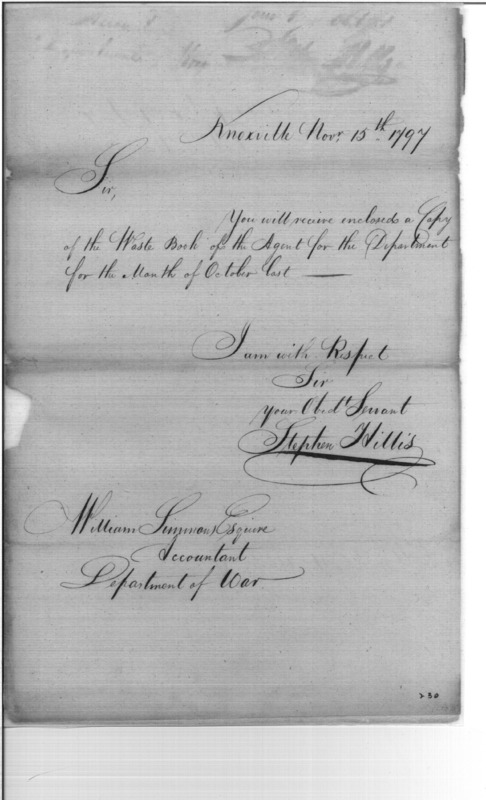 Knoxville Novr. 15th. 1797
Sir,
You will recieve enclosed a Copy
of the Waste Book of the Agent for the Department
for the Month of October last —
I am with Respect
Sir
your Obedt Servant
Stephen Hillis
William Simmons Esquire
Accountant
Department of War
230